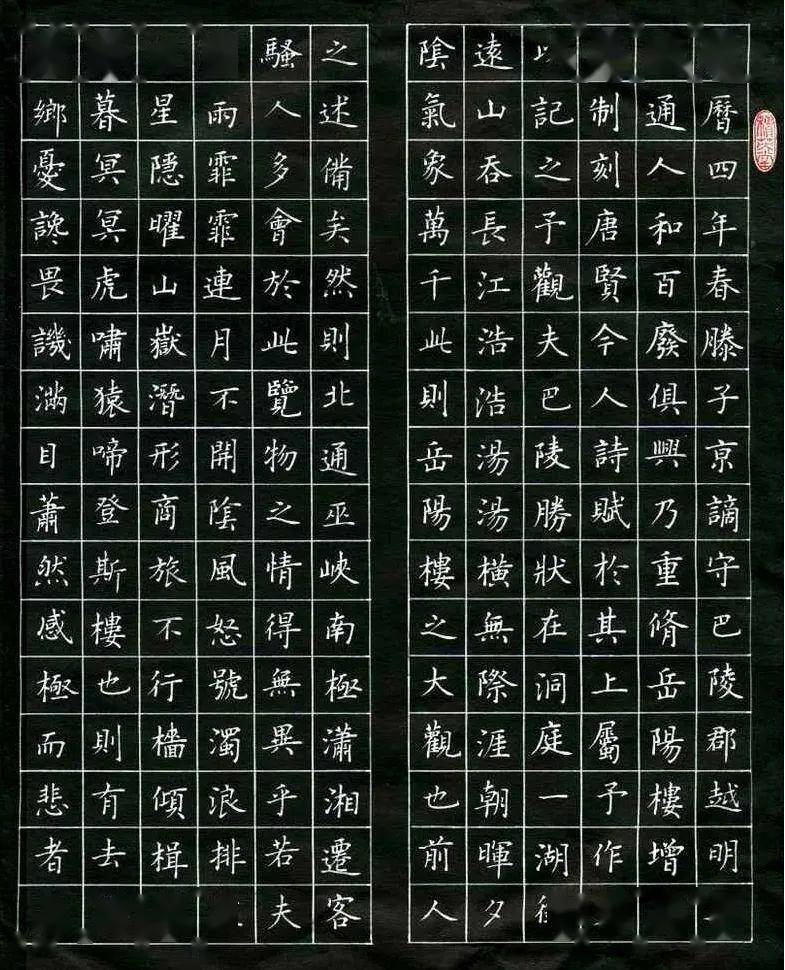 曆四年春滕子京謫守巴陵郡越明
通人和百廢俱興乃重脩岳陽樓增
制刻唐賢今人詩賦於其上屬予作
記之予觀夫巴陵勝狀在洞庭一湖
遠山吞長江浩浩湯湯橫無際涯朝暉夕
陰氣象萬千此則岳陽樓之大觀也前人
之述備矣然則北通巫峽南極瀟湘遷客
騷人多會於此覽物之情得無異乎若夫
雨霏霏連月不開陰風怒號濁浪排
星隱曜山嶽潛形商旅不行檣傾楫
暮冥冥虎嘯猿啼登斯樓也則有去
鄉憂讒畏譏滿目蕭然感極而悲者